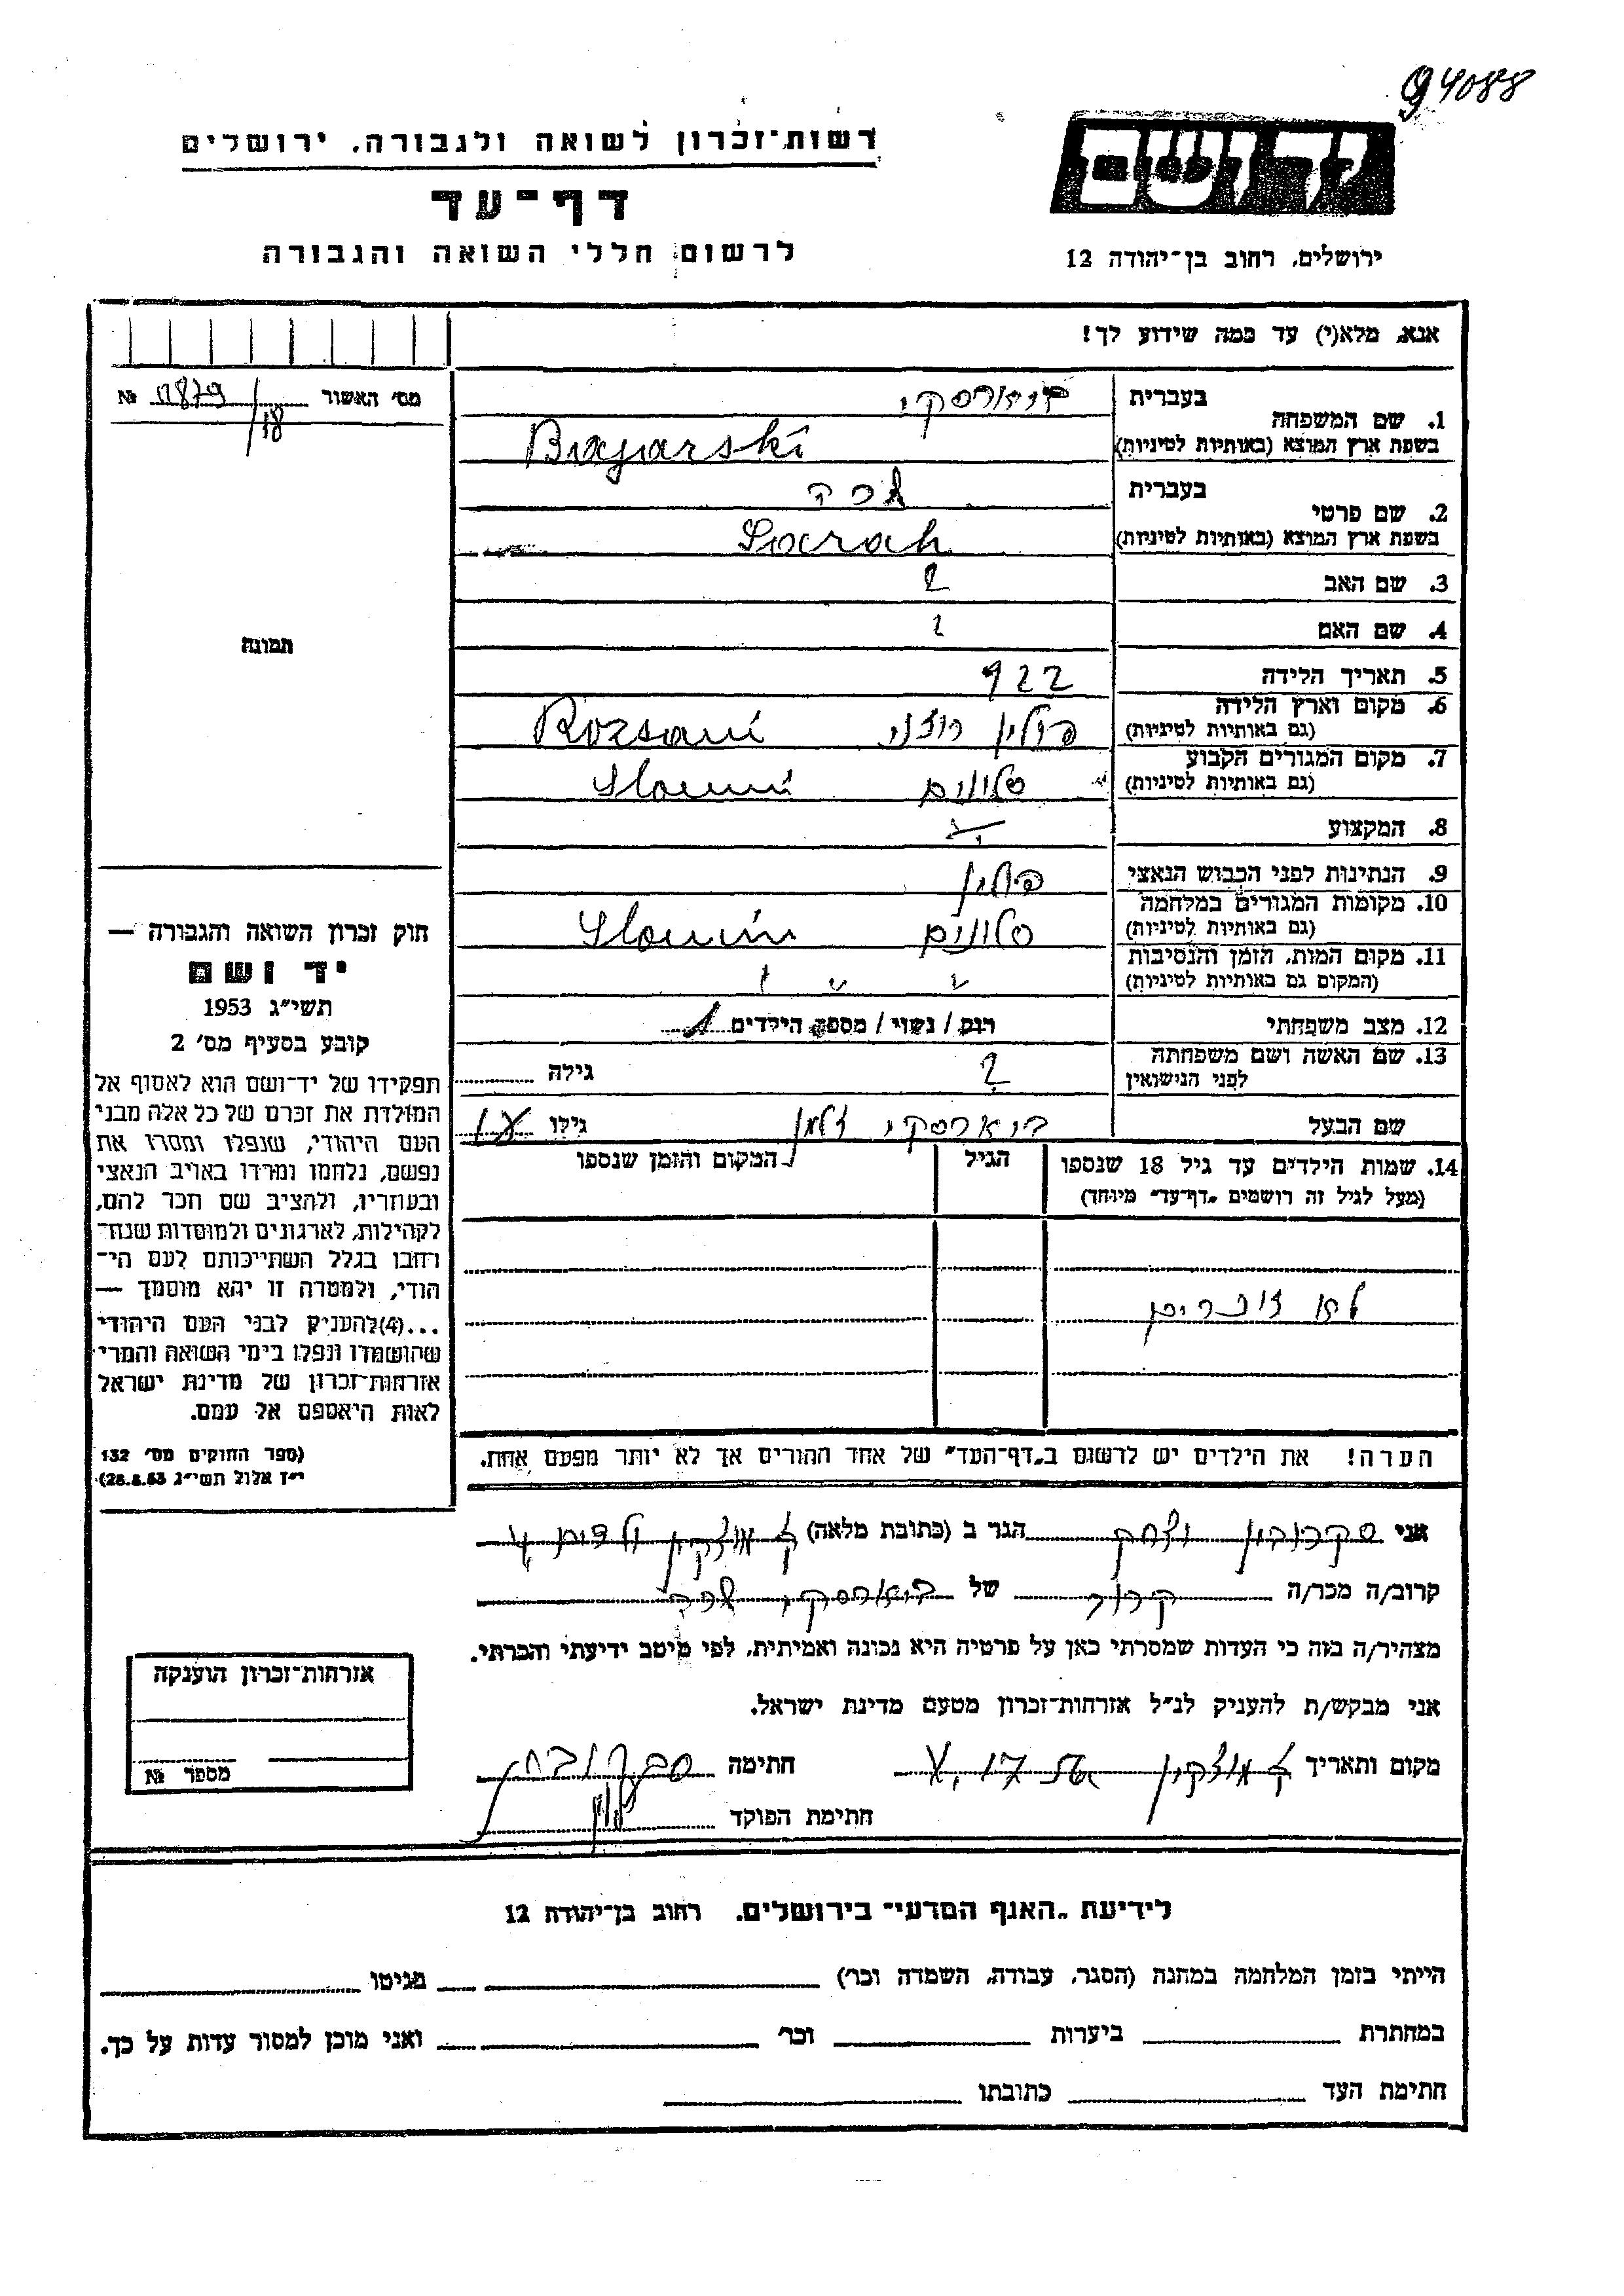 94088
יד ושם
רשות־זכרון לשואה ולגבורה, ירושלים
דף־עד
לרשום חללי השואה והגבורה
ירושלים, רחוב בן־יהודה 12
אנא, מלא(י) עד כמה שידוע לך!
מס׳ האשור № 11879/18
1. שם המשפחה
בעברית
בשפת ארץ המוצא (באותיות לטיניות) Biayarski
2. שם פרטי
בעברית שרה
בשפת ארץ המוצא (באותיות לטיניות) Sarah
3. שם האב ?
4. שם האם ?
תמונה
5. תאריך הלידה 922
6. מקום וארץ הלידה
(גם באותיות לטיניות) פולין רוזני Rozsani
7. מקום המגורים הקבוע
(גם באותיות לטיניות) סלונים Slonim
8. המקצוע
9. הנתינות לפני הכבוש הנאצי פולין
10. מקומות המגורים במלחמה
(גם באותיות לטיניות) סלונים Slonim
11. מקום המות, הזמן והנסיבות
(המקום גם באותיות לטיניות) " " "
12. מצב משפחתי רוק / נשוי / מספר הילדים 1
13. שם האשה ושם משפחתה
לפני הנישואין ? גילה
שם הבעל ביארסקי זלמן גילו
14. שמות הילדים עד גיל 18 שנספו
(מעל לגיל זה רושמים „דף־עד״ מיוחד)
הגיל
המקום והזמן שנספו
לא זוכרים
הערה! את הילדים יש לרשום ב„דף־העד״ של אחד ההורים אך לא יותר מפעם אחת.
חוק זכרון השואה והגבורה —
יד ושם
תשי״ג 1953
קובע בסעיף מס׳ 2
תפקידו של יד־ושם הוא לאסוף אל
המולדת את זכרם של כל אלה מבני
העם היהודי, שנפלו ומסרו את
נפשם, נלחמו ומרדו באויב הנאצי
ובעוזריו, ולהציב שם וזכר להם,
לקהילות, לארגונים ולמוסדות שנח־
רבו בגלל השתייכותם לעם הי־
הודי, ולמטרה זו יהא מוסמך —
...(4)להעניק לבני העם היהודי
שהושמדו ונפלו בימי השואה והמרי
אזרחות־זכרון של מדינת ישראל
לאות היאספם אל עמם.
(ספר החוקים מס׳ 132
י״ז אלול תשי״ג 28.8.53)
אני הגר ב (כתובת מלאה)
קרוב/ה מכר/ה קרוב של ביארסקי שרה
מצהיר/ה בזה כי העדות שמסרתי כאן על פרטיה היא נכונה ואמיתית, לפי מיטב ידיעתי והכרתי.
אני מבקש/ת להעניק לנ״ל אזרחות־זכרון מטעם מדינת ישראל.
מקום ותאריך חתימה
חתימת הפוקד
אזרחות־זכרון הוענקה
מספר №
לידיעת „האגף המדעי״ בירושלים. רחוב בן־יהודה 12
הייתי בזמן המלחמה במחנה (הסגר, עבודה, השמדה וכו׳) מגיטו
במחתרת ביערות וכו׳ ואני מוכן למסור עדות על כך.
חתימת העד כתובתו